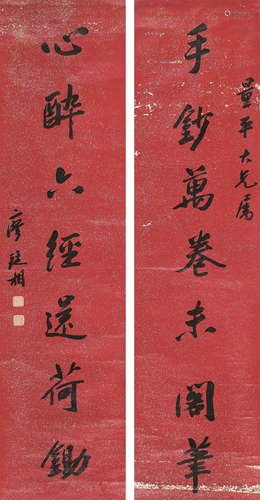 手鈔萬卷未閣筆
量平大兄屬
心醉六經還荷鋤
廖廷相